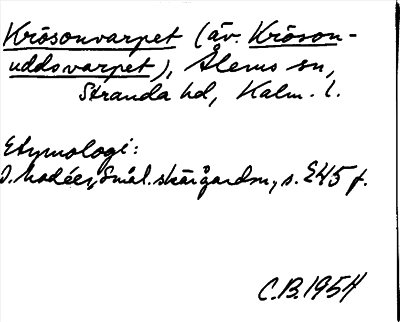 Krösonvarpet (äv. Kröson-
uddsvarpet), Ålems sn,
Stranda hd, Kalm. l.
Etymologi:
J. Modéer, Smål. skärgårdsn., s. 245 f.
C.B. 1954